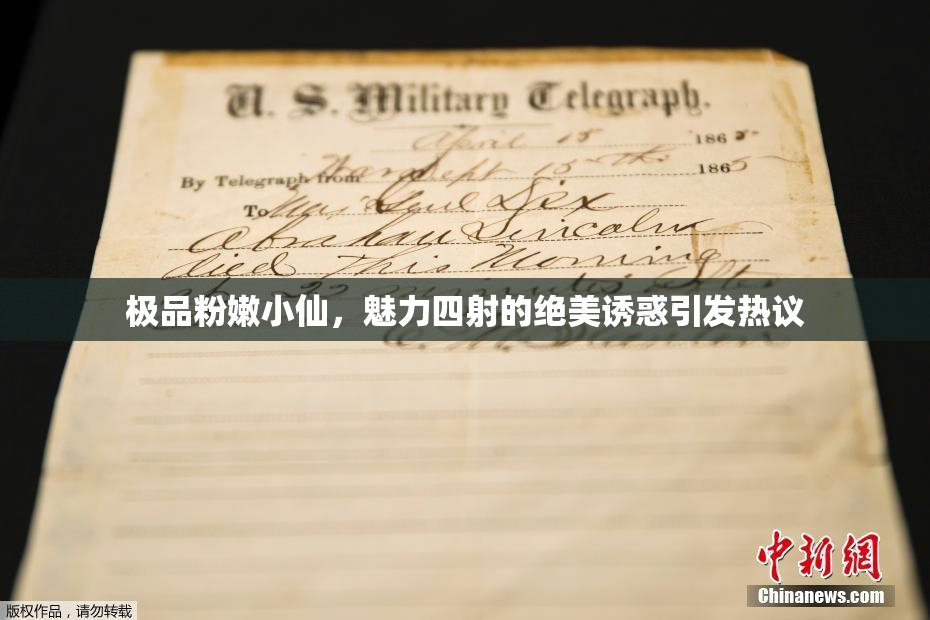 U. S. Military Telegraph.
April 15 1865
By Telegraph from War Dept 15th 1865
To Maj Genl Dix
Abraham Lincoln
died This Morning
22 minutes after
极品粉嫩小仙，魅力四射的绝美诱惑引发热议
E. M. Stanton
中新网
Chinanews.com
版权作品，请勿转载